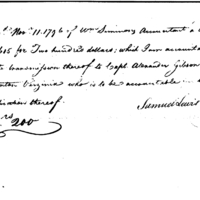 Nov. 11. 1796 of Wm Simmons Accountant a
for Two hundred dollars; which I am accountable
transmission thereof to Capt. Alexander Gibson
Virginia who is to be accountable
thereof
Samuel Lewis
200